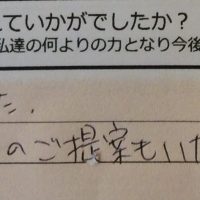 していかがでしたか？
私達の何よりの力となり今後
た.
のご提案もいた